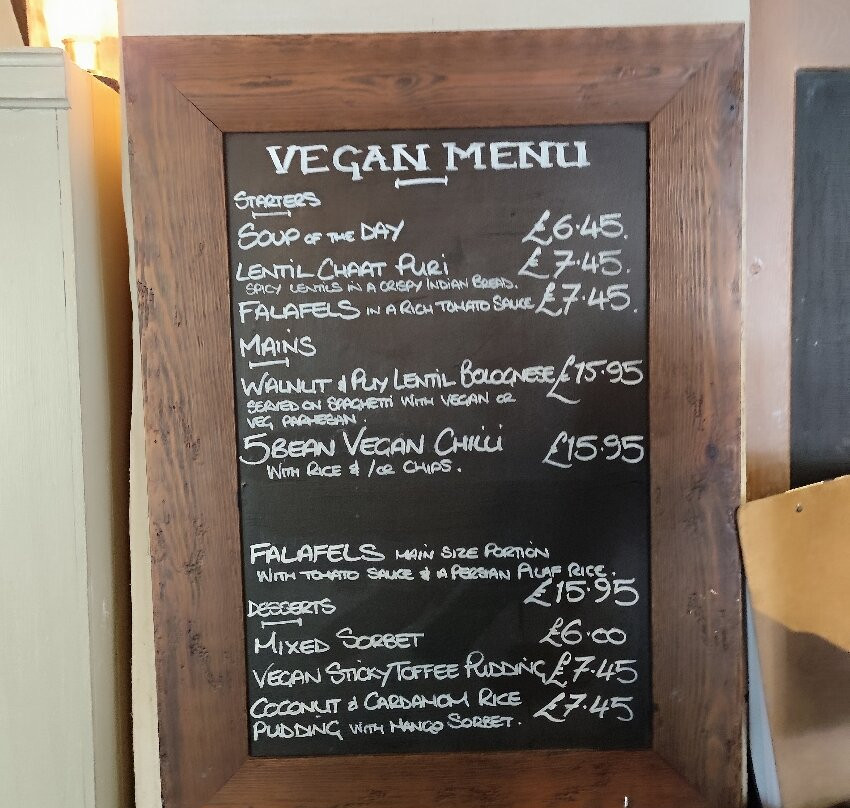 VEGAN MENU
STARTERS
SOUP OF THE DAY £6.45.
LENTIL CHAAT PURI £7.45.
SPICY LENTILS IN A CRISPY INDIAN BREAD.
FALAFELS IN A RICH TOMATO SAUCE £7.45.
MAINS
WALNUT & PUY LENTIL BOLOGNESE £15.95
SERVED ON SPAGHETTI WITH VEGAN OR
VEG PARMESAN.
5 BEAN VEGAN CHILLI £15.95
WITH RICE & /OR CHIPS.
FALAFELS MAIN SIZE PORTION
WITH TOMATO SAUCE & A PERSIAN PILAF RICE.
£15.95
DESSERTS
MIXED SORBET £6.00
VEGAN STICKY TOFFEE PUDDING £7.45
COCONUT & CARDAMOM RICE £7.45
PUDDING WITH MANGO SORBET.